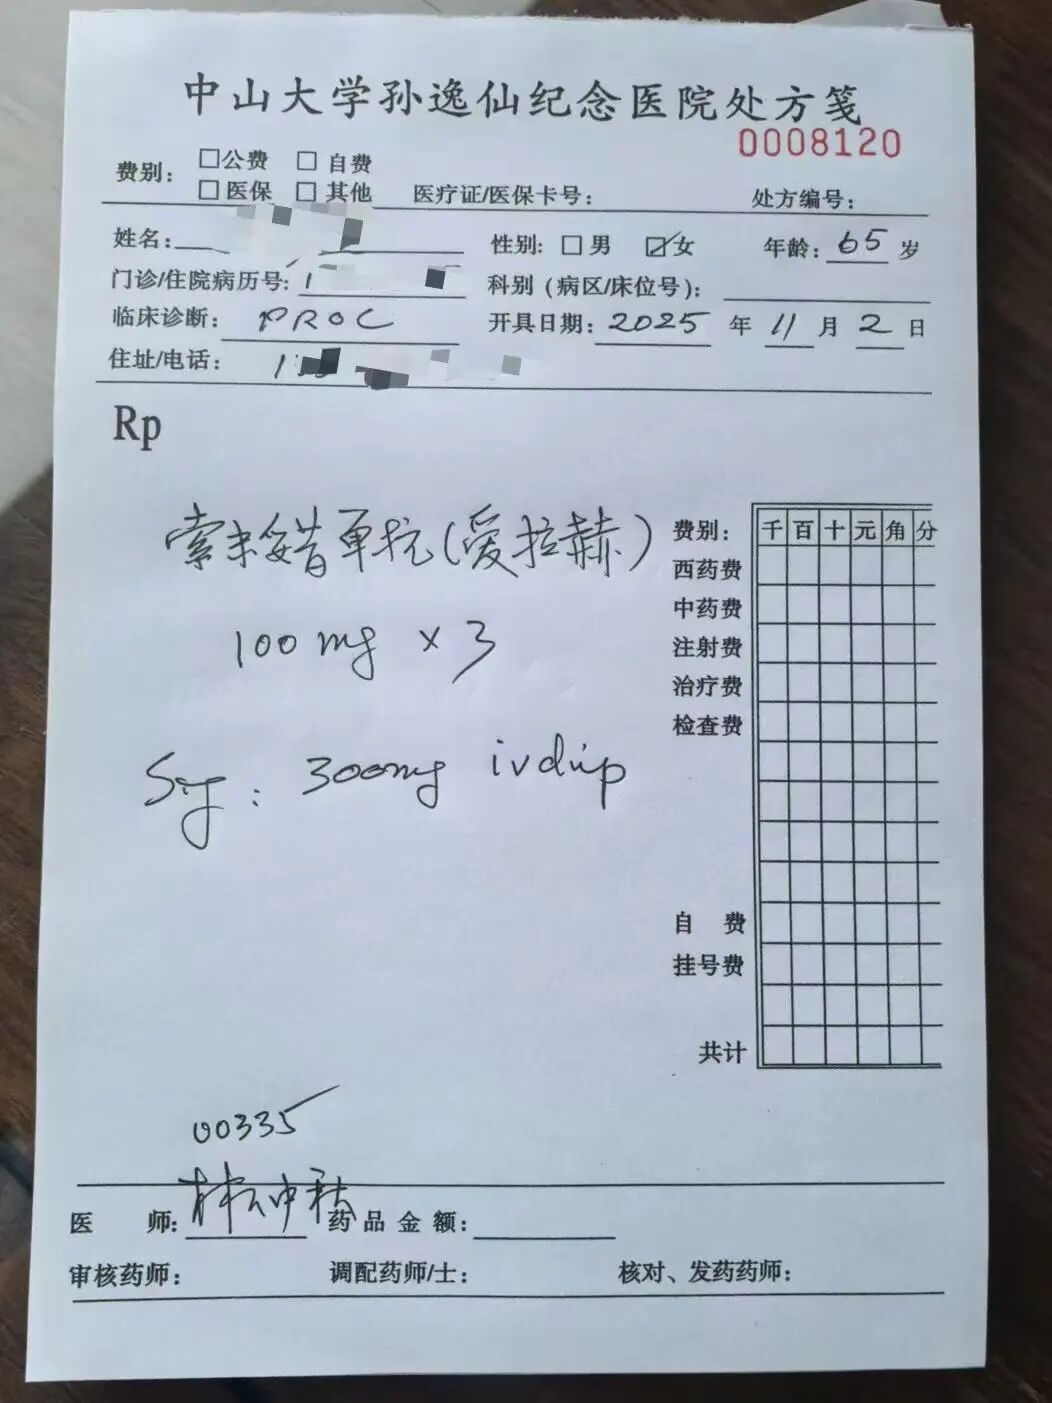 中山大学孙逸仙纪念医院处方笺
0008120
费别: □公费 □自费
□医保 □其他 医疗证/医保卡号: 处方编号:
姓名: 性别: □男 ☑女 年龄: 65 岁
门诊/住院病历号: 科别(病区/床位号):
临床诊断: PROC 开具日期: 2025 年 11 月 2 日
住址/电话: 1
Rp
索米妥昔单抗(爱拉赫)
100mg × 3
Sig: 300mg ivdrip
费别: 千 百 十 元 角 分
西药费
中药费
注射费
治疗费
检查费
自 费
挂号费
共计
00335
医 师: 林仲秋 药品金额:
审核药师: 调配药师/士: 核对、发药药师: